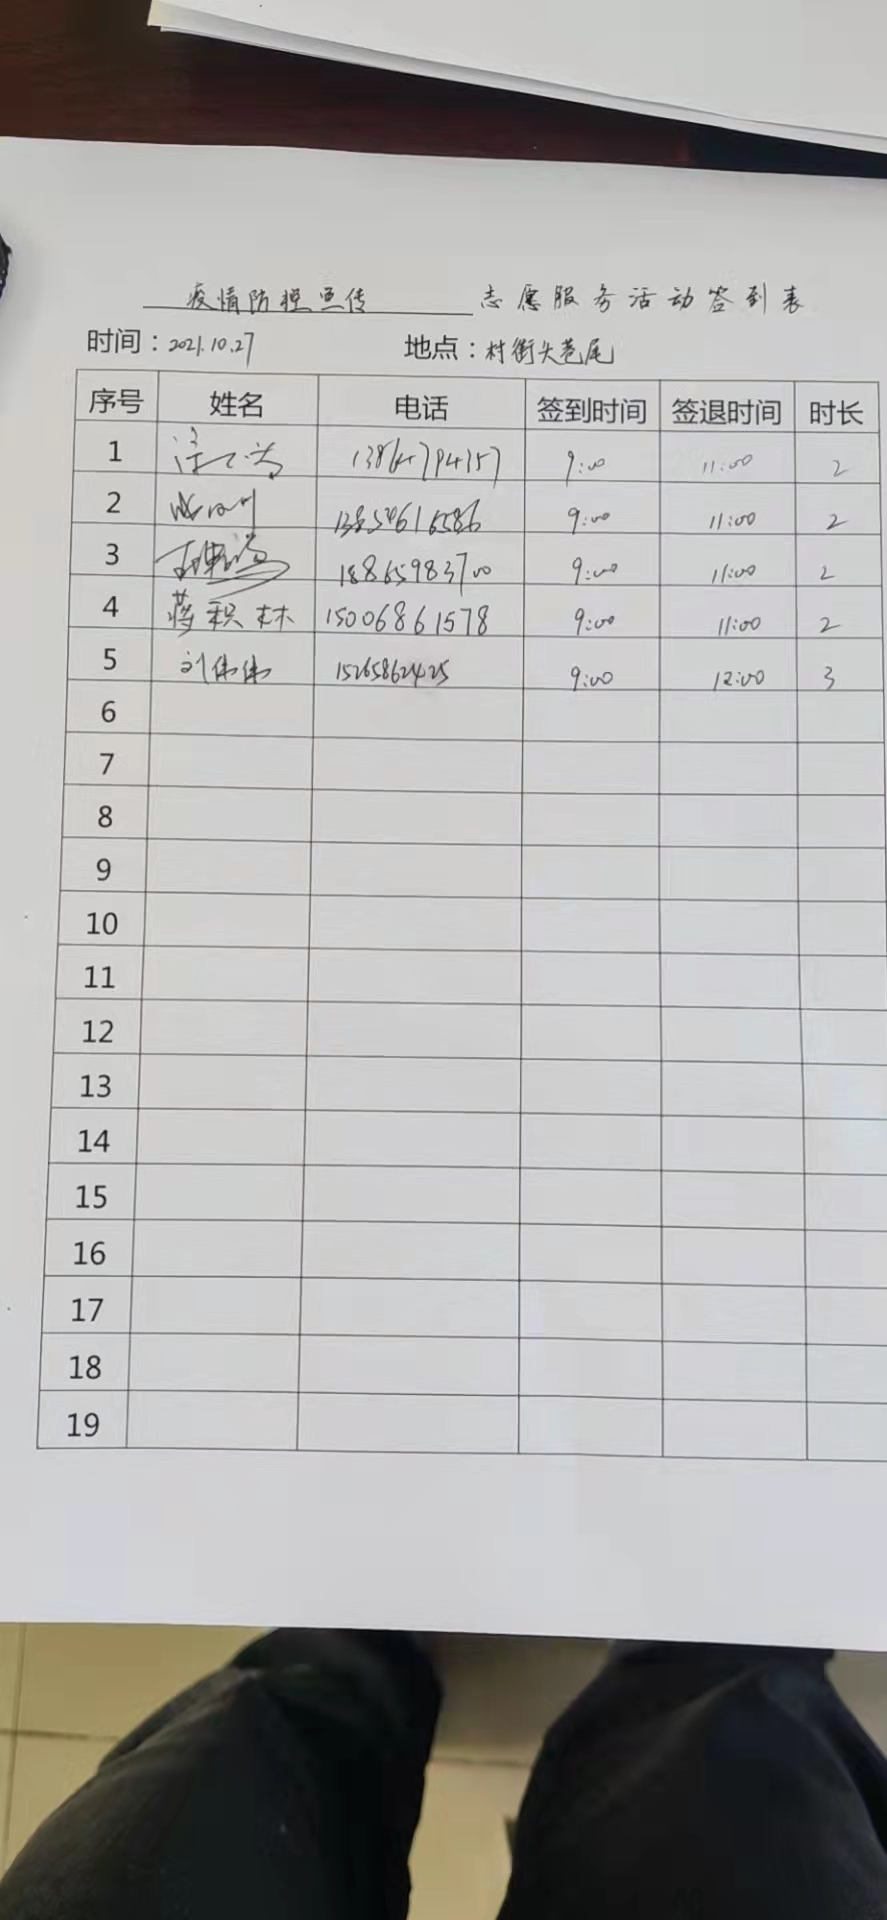 疫情防控宣传 志愿服务活动签到表
时间：2021.10.27 地点：村街头巷尾
序号 姓名 电话 签到时间 签退时间 时长
1 9:00 11:00 2
2 9:00 11:00 2
3 18865983700 9:00 11:00 2
4 蒋积林 15006861578 9:00 11:00 2
5 刘伟伟 15265862425 9:00 12:00 3
6
7
8
9
10
11
12
13
14
15
16
17
18
19